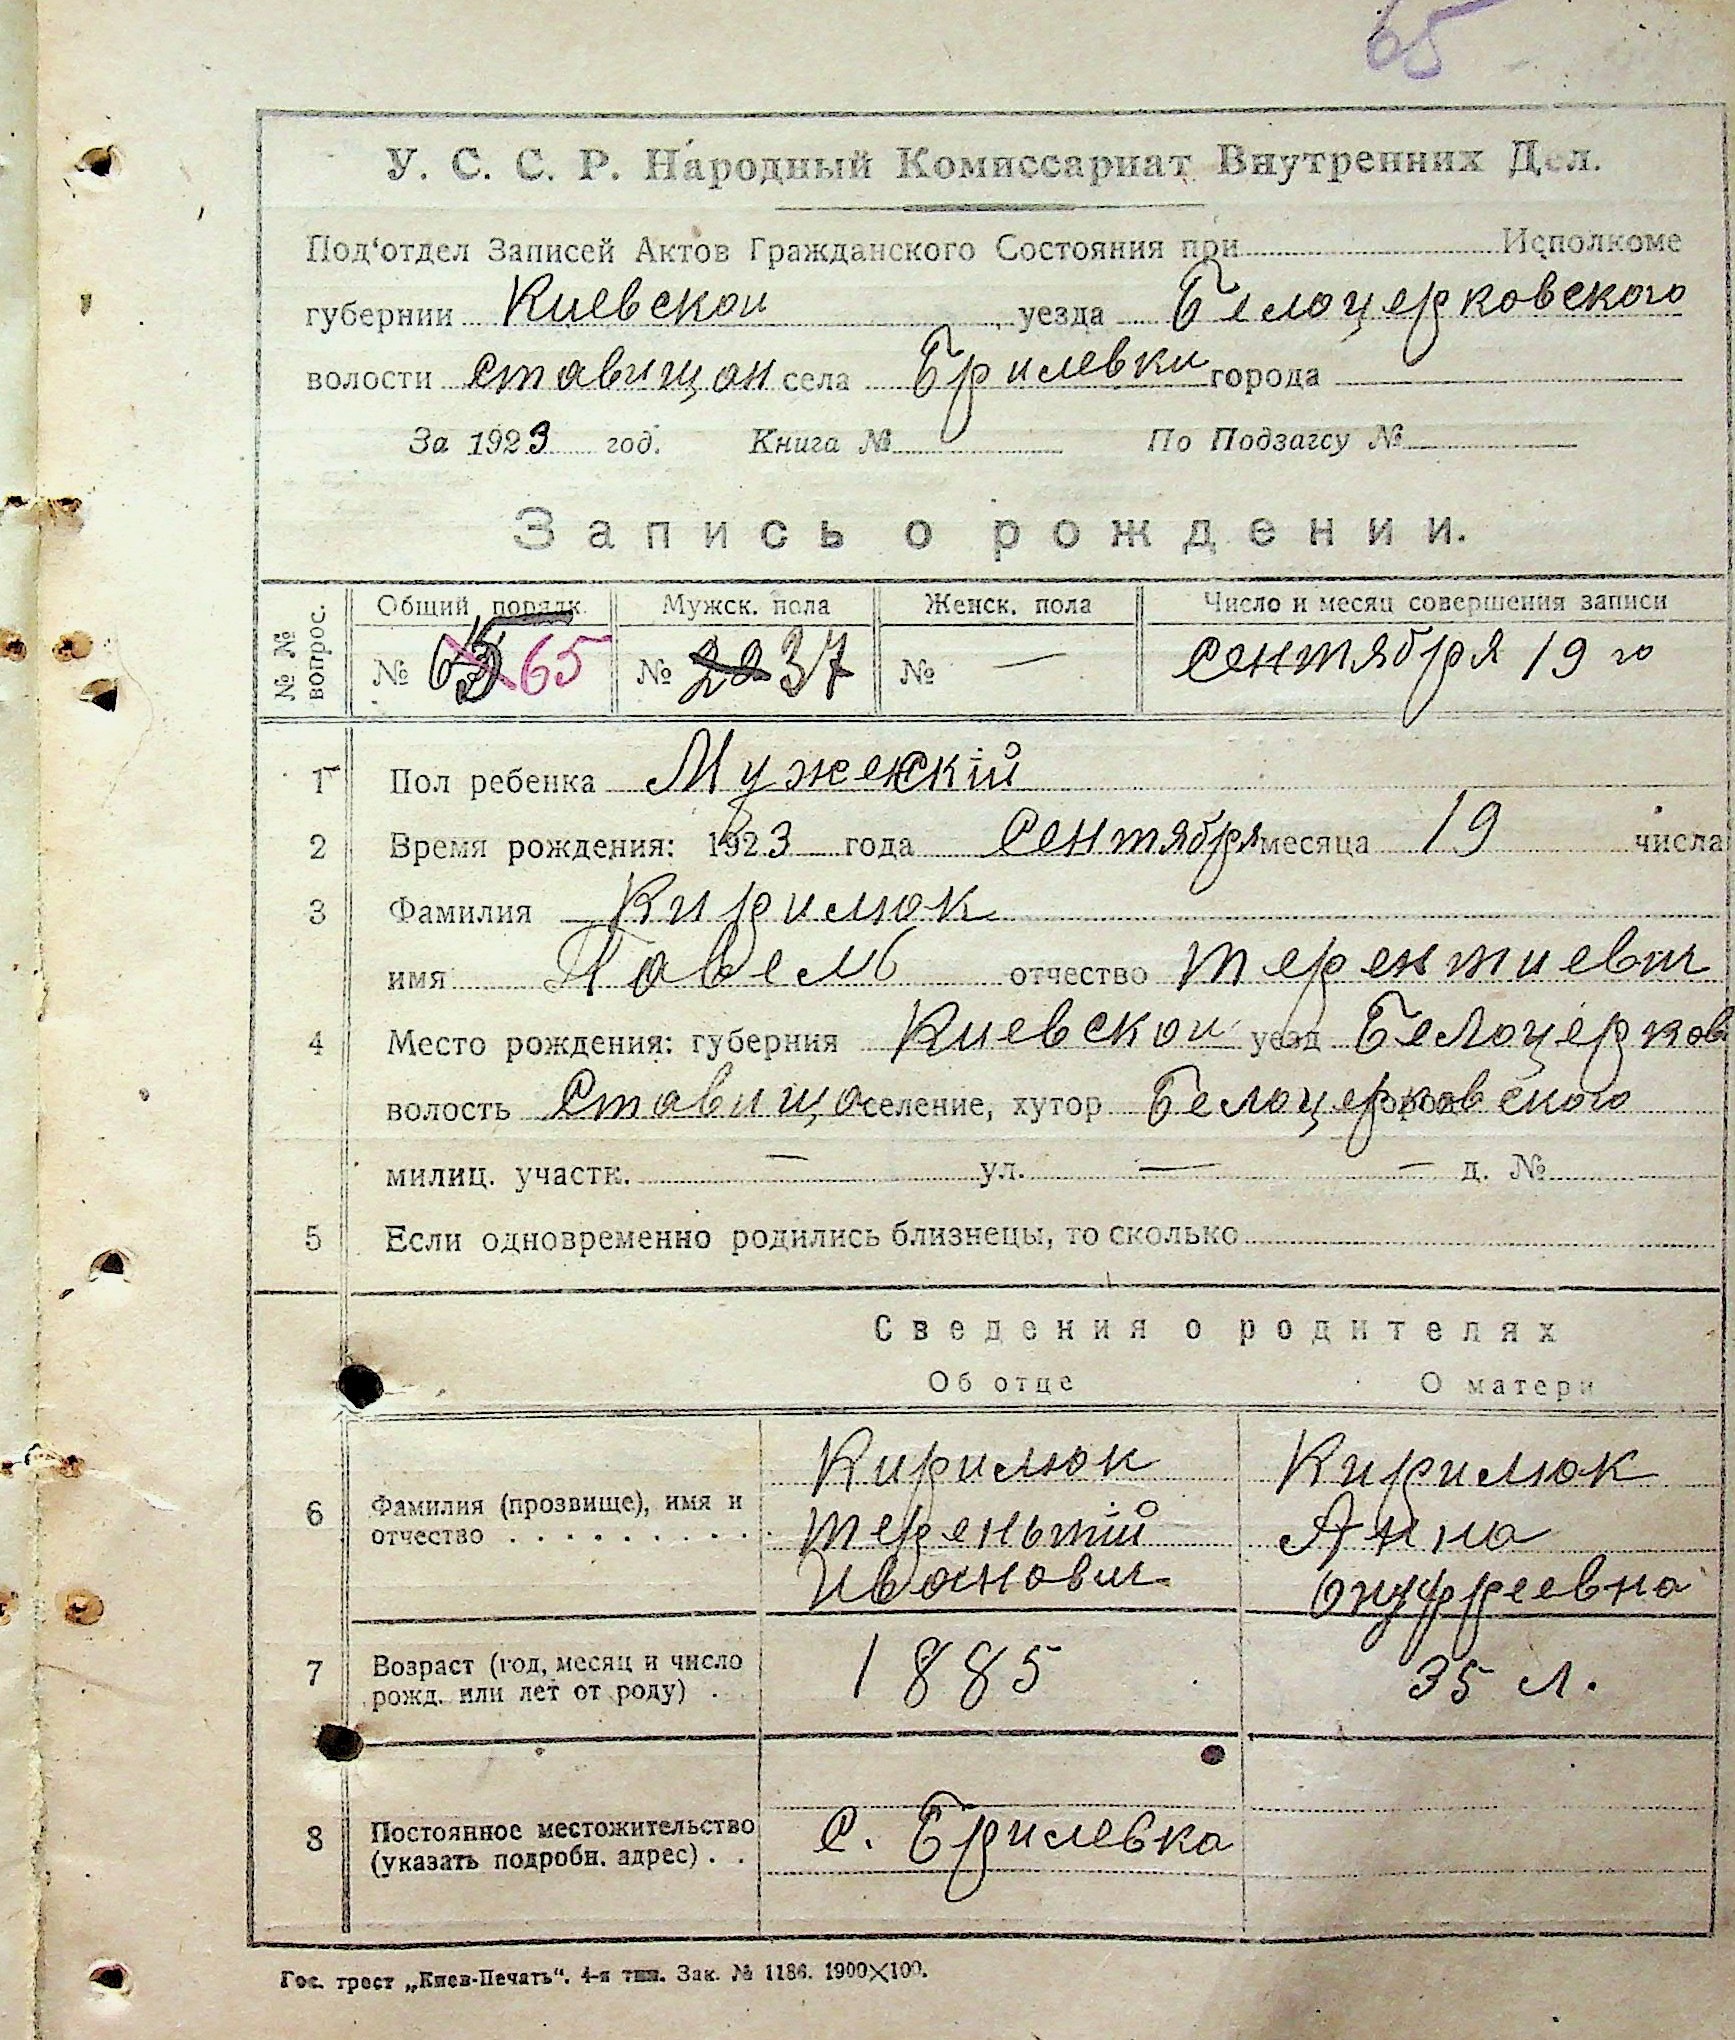 65
У. С. С. Р. Народный Комиссариат Внутренних Дел.
Под‘отдел Записей Актов Гражданского Состояния при Исполкоме
губернии Киевской уезда Белоцерковского
волости Ставищан села Брилевки города
За 1923 год. Книга № По Подзагсу №
Запись о рождении.
№ № вопрос. Общий порядк. Мужск. пола Женск. пола Число и месяц совершения записи
№ 65 № 22 37 № — Сентября 19 го
1 Пол ребенка Мужескій
2 Время рождения: 1923 года Сентября месяца 19 числа
3 Фамилия Кирилюк
имя Павель отчество Терентиевич
4 Место рождения: губерния Киевской уезд Белоцерков
волость Ставища селение, хутор Белоцерковского
милиц. участк. — ул. — — д. №
5 Если одновременно родились близнецы, то сколько
Сведения о родителях
Об отце О матери
Кирилюк Кирилюк
6 Фамилия (прозвище), имя и
отчество . . . . . . . . . . Терентьій Анна
Иванович Онуфреевна
7 Возраст (год, месяц и число
рожд. или лет от роду) . 1885 35 л.
8 Постоянное местожительство
(указать подробн. адрес) . . С. Брилевка
Гос. трест „Киев-Печать“. 4-я тип. Зак. № 1186. 1900×100.